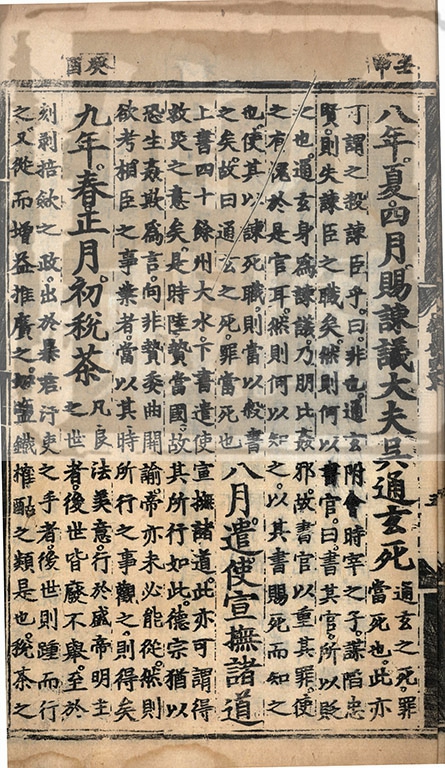 壬申
八年。夏四月。賜諫議大夫吳通玄死
通玄之死。罪
當死也。此亦
可謂之殺諫臣乎。曰。非也。通玄附會時宰之子。謀陷忠
賢。則失諫臣之職矣。然則何以書官。曰。書其官。所以貶
之也。通玄身為諫議。乃朋比姦邪。故書官以重其罪。使
之有愧於是官耳。然則何以知之。以其書賜死而知之
也。使其以諫死職。則當以殺書
之矣。故曰通玄之死。罪當死也
八月。遣使宣撫諸道
上書四十餘州大水。下書遣使宣撫諸道。此亦可謂得
救災之意矣。是時陸贄當國。故其所行如此。德宗猶以
恐生姦欺為言。向非贄委曲開諭。帝亦未必能從。然則
欲考相臣之事業者。當以其時所行之事觀之。則得矣
癸酉
九年。春正月。初稅茶
凡良法美意。行於盛帝明主
之世者。後世皆廢不舉。至於
刻剥掊歛之政。出於暴君汙吏之手者。後世則踵而行
之。又從而增益推廣之。如鹽鐵榷酤之類是也。稅茶之